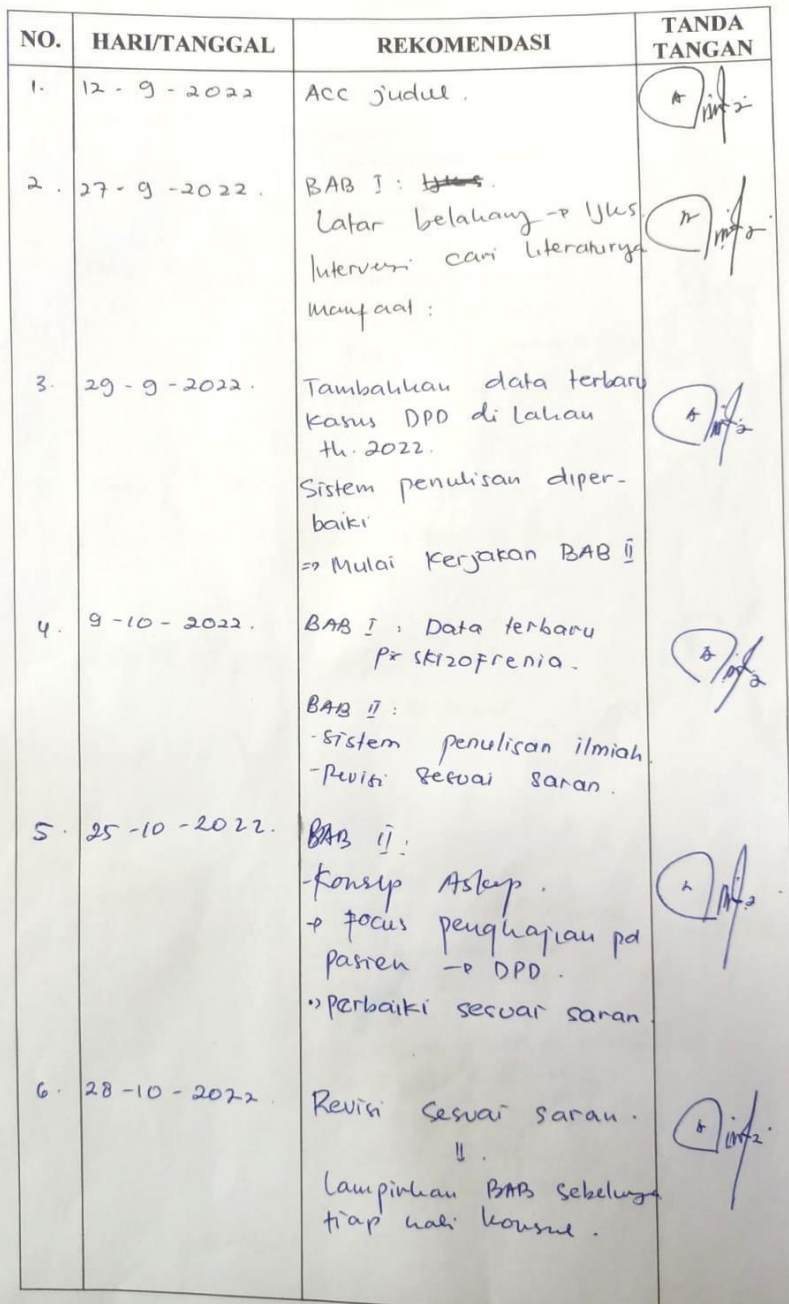 NO. HARI/TANGGAL REKOMENDASI TANDA TANGAN
1. 12 - 9 - 2022 ACC judul.
2. 27 - 9 - 2022. BAB I :
Latar belakang → IJKS
Intervensi cari literaturnya
Manfaat :
3. 29 - 9 - 2022. Tambahkan data terbaru
Kasus DPD di Lahan
th. 2022.
Sistem penulisan diper-
baiki
=> Mulai Kerjakan BAB II
4. 9 - 10 - 2022. BAB I : Data terbaru
Px Skizofrenia.
BAB II :
- Sistem penulisan ilmiah
- Revisi Sesuai saran.
5. 25 - 10 - 2022. BAB II :
- Konsep Askep.
→ Focus pengkajian pd
pasien → DPD.
perbaiki sesuai saran
6. 28 - 10 - 2022 Revisi sesuai saran.
Lampirkan BAB sebelumnya
tiap kali konsul.